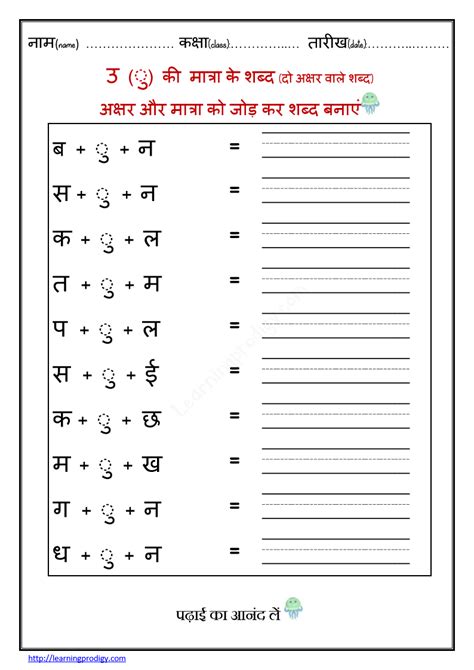 नाम(name) ..................... कक्षा(class)................... तारीख(date)...................
उ (ु) की मात्रा के शब्द (दो अक्षर वाले शब्द)
अक्षर और मात्रा को जोड़ कर शब्द बनाएं
ब + ु + न =
स + ु + न =
क + ु + ल =
त + ु + म =
प + ु + ल =
स + ु + ई =
क + ु + छ =
म + ु + ख =
ग + ु + न =
ध + ु + न =
Learningprodigy.com
पढ़ाई का आनंद लें
http://learningprodigy.com